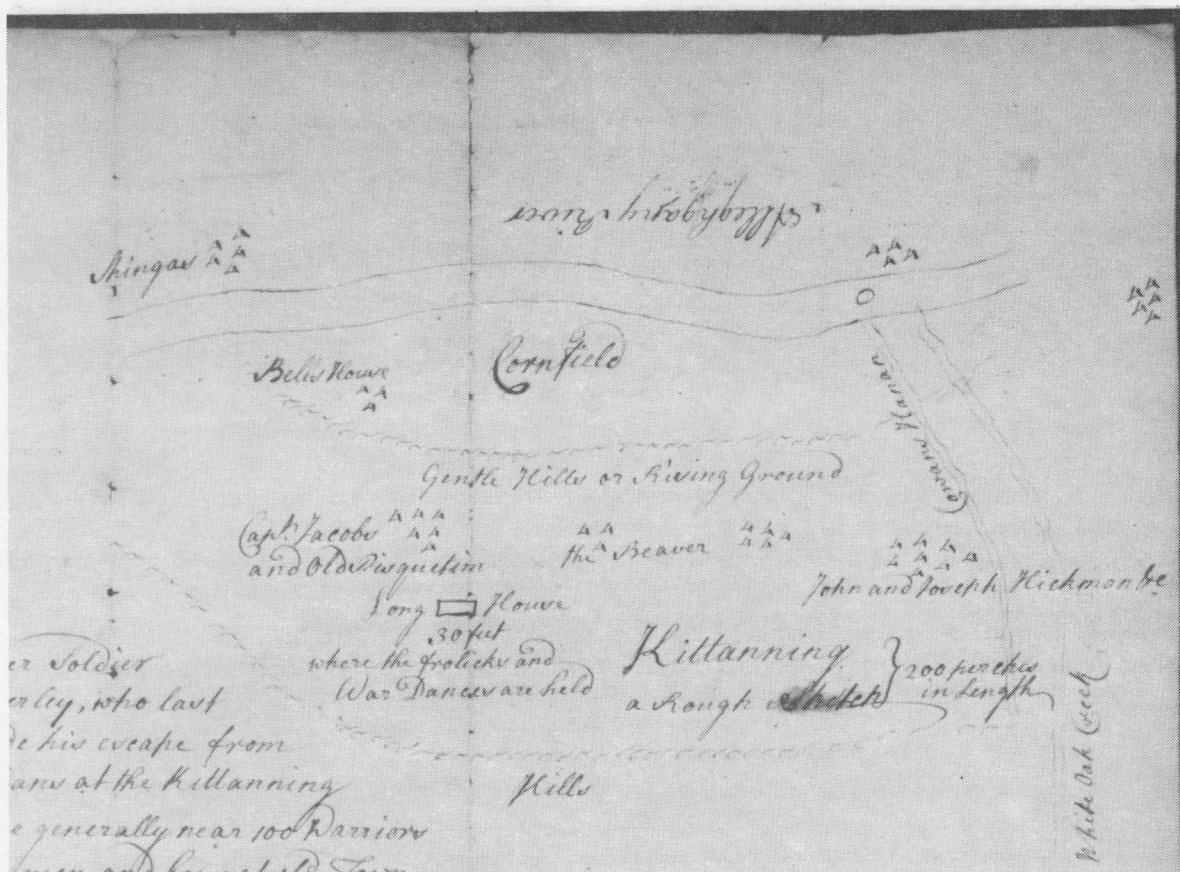 Shingas
Bells House
Cornfield
Gentle Hills or Rising Ground
Capt. Jacobs
and Old Pisquetim
the Beaver
John and Joseph Hickman &c
Long House
30 feet
where the frolicks and
War Dances are held
Kittanning
a Rough Sketch
200 perches
in Length
White Oak Creek
Hills
er Soldier
erley, who last
de his escape from
ians at the Kittanning
e generally near 100 Warriors